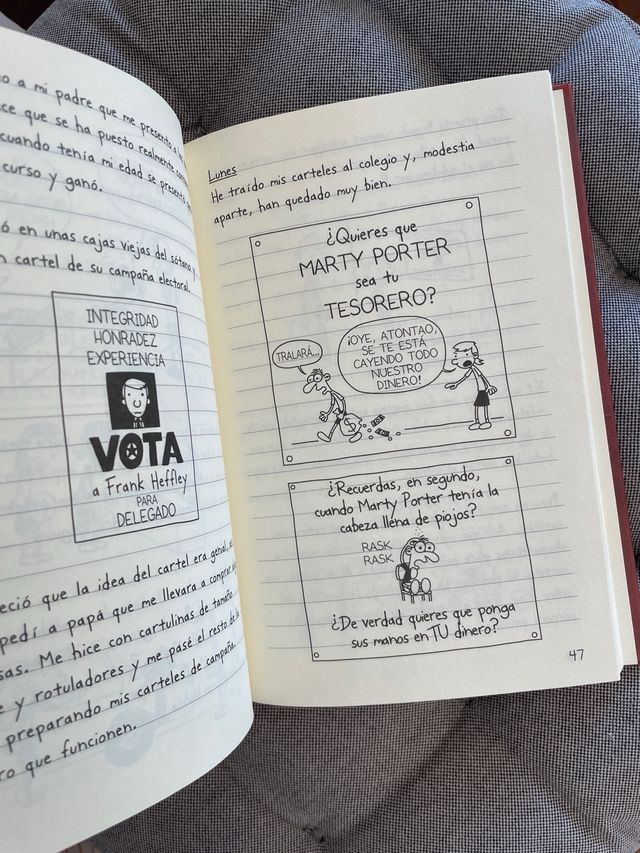 a mi padre que me presento a
que se ha puesto realmente
cuando tenía mi edad se presentó
curso y ganó.
en unas cajas viejas del sótano y
cartel de su campaña electoral.
INTEGRIDAD
HONRADEZ
EXPERIENCIA
VOTA
a Frank Heffley
PARA
DELEGADO
que la idea del cartel era genial,
pedí a papá que me llevara a comprar
Me hice con cartulinas de tamaño
y rotuladores y me pasé el resto de
preparando mis carteles de campaña.
que funcionen.
Lunes
He traído mis carteles al colegio y, modestia
aparte, han quedado muy bien.
¿Quieres que
MARTY PORTER
sea tu
TESORERO?
TRALARÁ...
¡OYE, ATONTAO,
SE TE ESTÁ
CAYENDO TODO
NUESTRO
DINERO!
¿Recuerdas, en segundo,
cuando Marty Porter tenía la
cabeza llena de piojos?
RASK
RASK
¿De verdad quieres que ponga
sus manos en TU dinero?
47